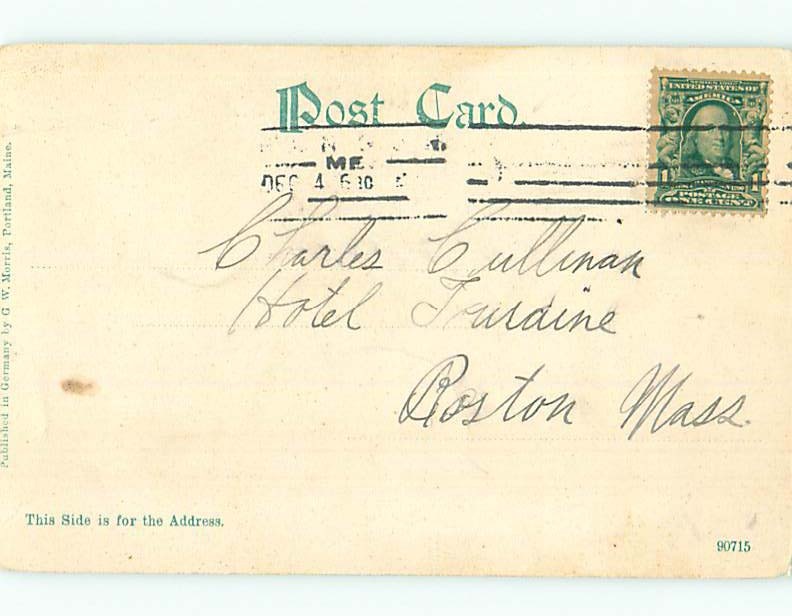 Post Card.
SERIES 1902
UNITED STATES OF
AMERICA
1 1
POSTAGE
ONE CENT
ME.
DEC 4 6 30
Charles Cullinan
Hotel Touraine
Boston Mass.
Published in Germany by G. W. Morris, Portland, Maine.
This Side is for the Address.
90715